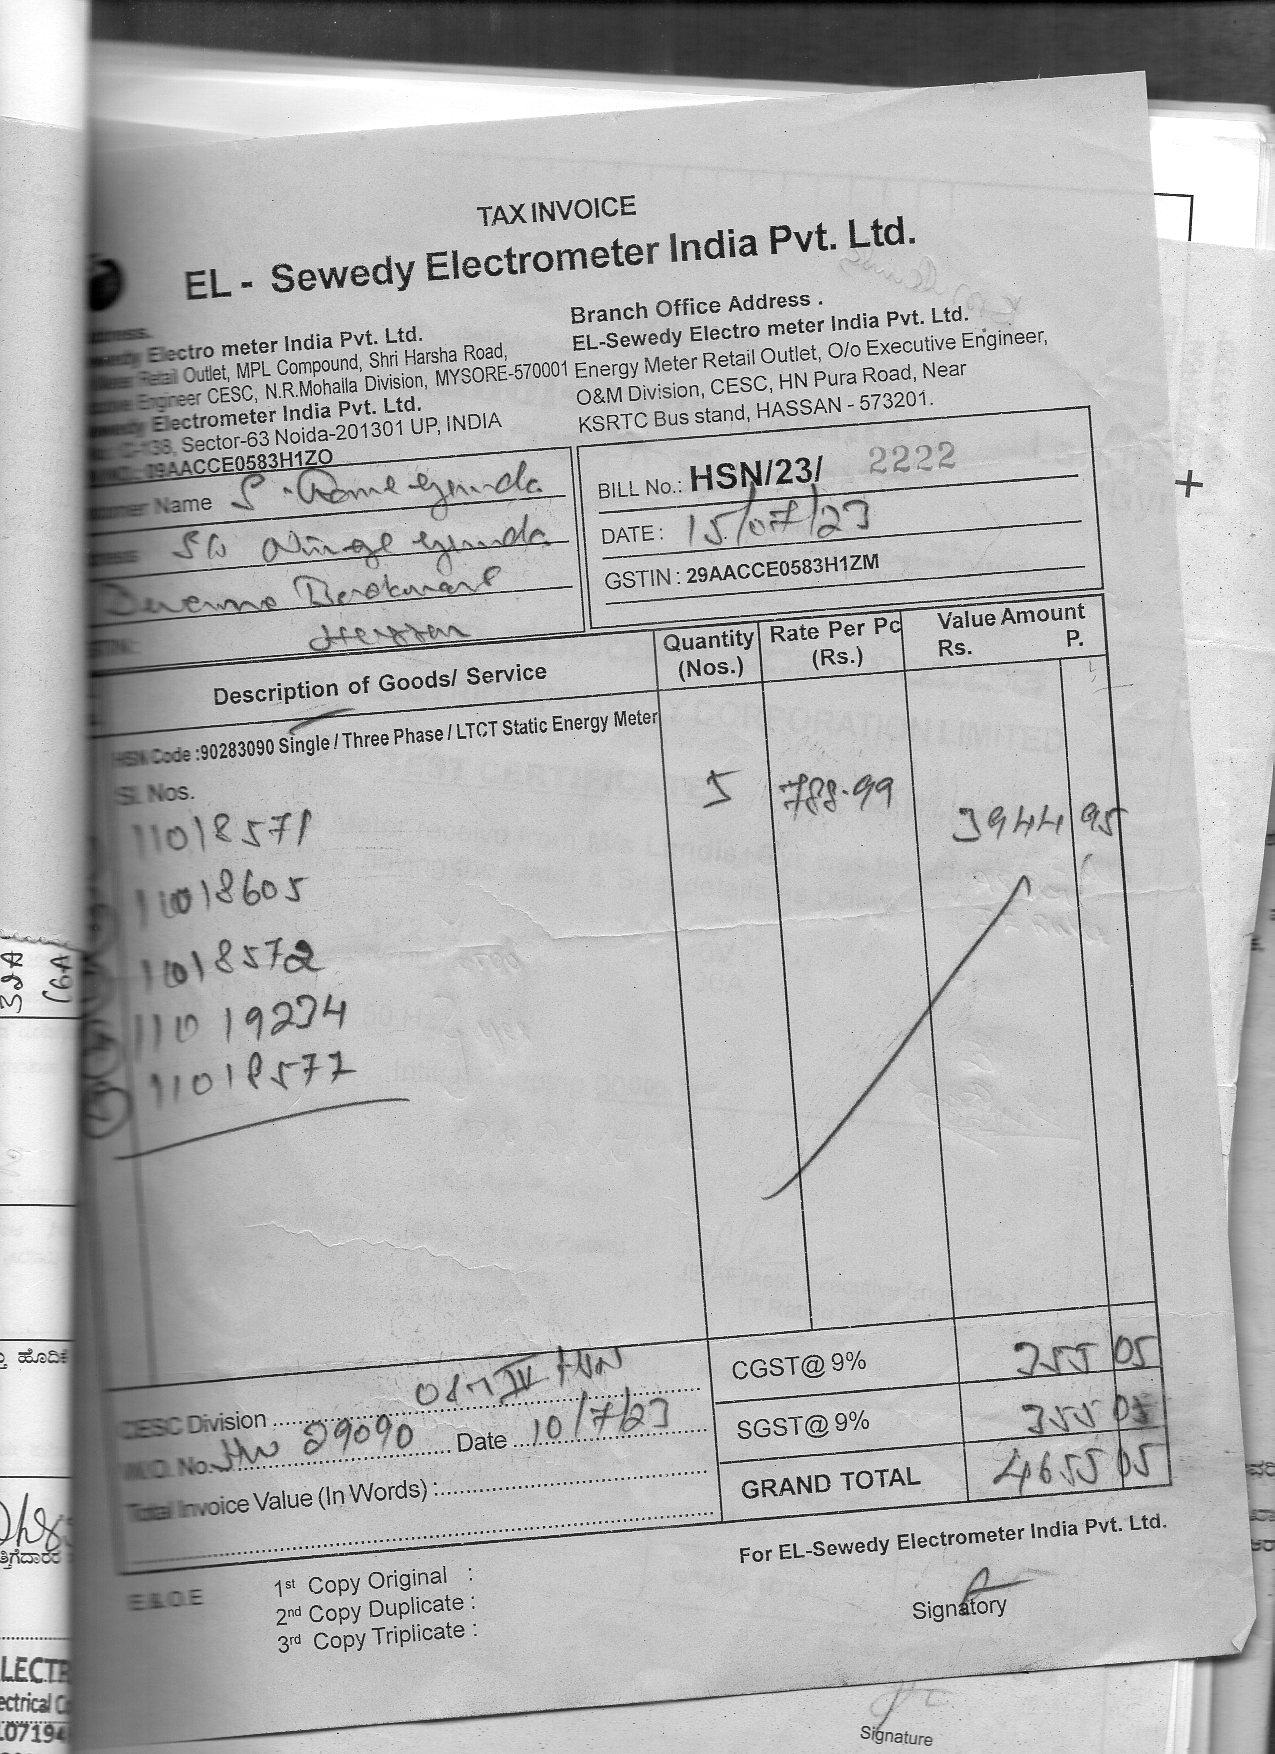 TAX INVOICE
EL - Sewedy Electrometer India Pvt. Ltd.
Electro meter India Pvt. Ltd.
Retail Outlet, MPL Compound, Shri Harsha Road,
Engineer CESC, N.R.Mohalla Division, MYSORE-570001
Electrometer India Pvt. Ltd.
Sector-63 Noida-201301 UP, INDIA
29AACCE0583H1ZO
Branch Office Address .
EL-Sewedy Electro meter India Pvt. Ltd.
Energy Meter Retail Outlet, O/o Executive Engineer,
O&M Division, CESC, HN Pura Road, Near
KSRTC Bus stand, HASSAN - 573201.
Name S.
S/o
Hassan
BILL No.: HSN/23/ 2222
DATE : 15/07/23
GSTIN : 29AACCE0583H1ZM
Description of Goods/ Service
Quantity (Nos.)
Rate Per Pc (Rs.)
Value Amount
Rs. P.
HSN Code :90283090 Single / Three Phase / LTCT Static Energy Meter
Sl. Nos.
5 788.99 3944 95
11018571
11018605
11018572
11019234
11018577
CGST@ 9% 355 05
SGST@ 9% 355 05
GRAND TOTAL 4655 05
CESC Division O&M IV HSN
W.O. No. 29090 Date 10/7/23
Total Invoice Value (In Words) :
For EL-Sewedy Electrometer India Pvt. Ltd.
Signatory
E & O.E
1st Copy Original :
2nd Copy Duplicate :
3rd Copy Triplicate :
Signature
32A
16A
ಹೊದಿಕೆ
LECTR
ectrical C
07194